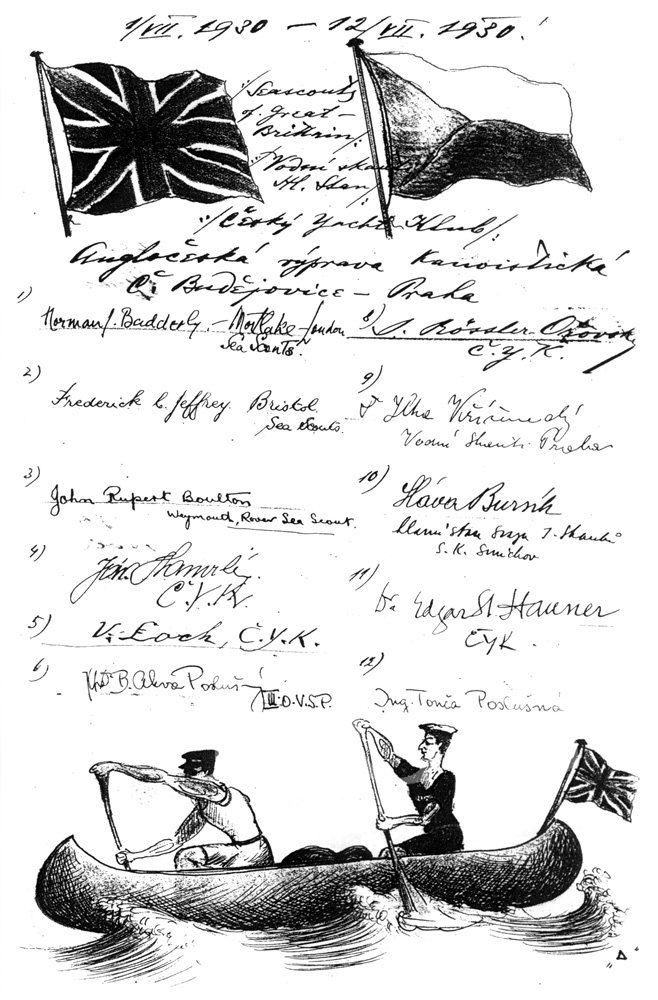 1/VII. 1930 — 12/VII. 1930!
/Seascouts
of Great-
Brittain/
/Vodní skauti
Hl. Stan/
/Český Yacht Klub/
Angločeská výprava kanoistická
Č. Budějovice — Praha
1) Norman J. Badderly, — Mortlake - London
Sea Scouts.
2) Frederick C. Jeffrey. Bristol.
Sea Scouts.
3) John Rupert Boulton
Weymouth, Rover Sea Scout.
4) Jan
Č.Y.K.
5) V. Loch, Č.Y.K.
6) B. Akvo
III.O.V.S.P.
8) Rössler
Č.Y.K.
9) Vodní Skauti Praha
10) Sláva Burník
S.K. Smíchov
11) Dr. Edgar St. Hauner
ČYK.
12) Ing. Tonča Poslušná
"Δ"